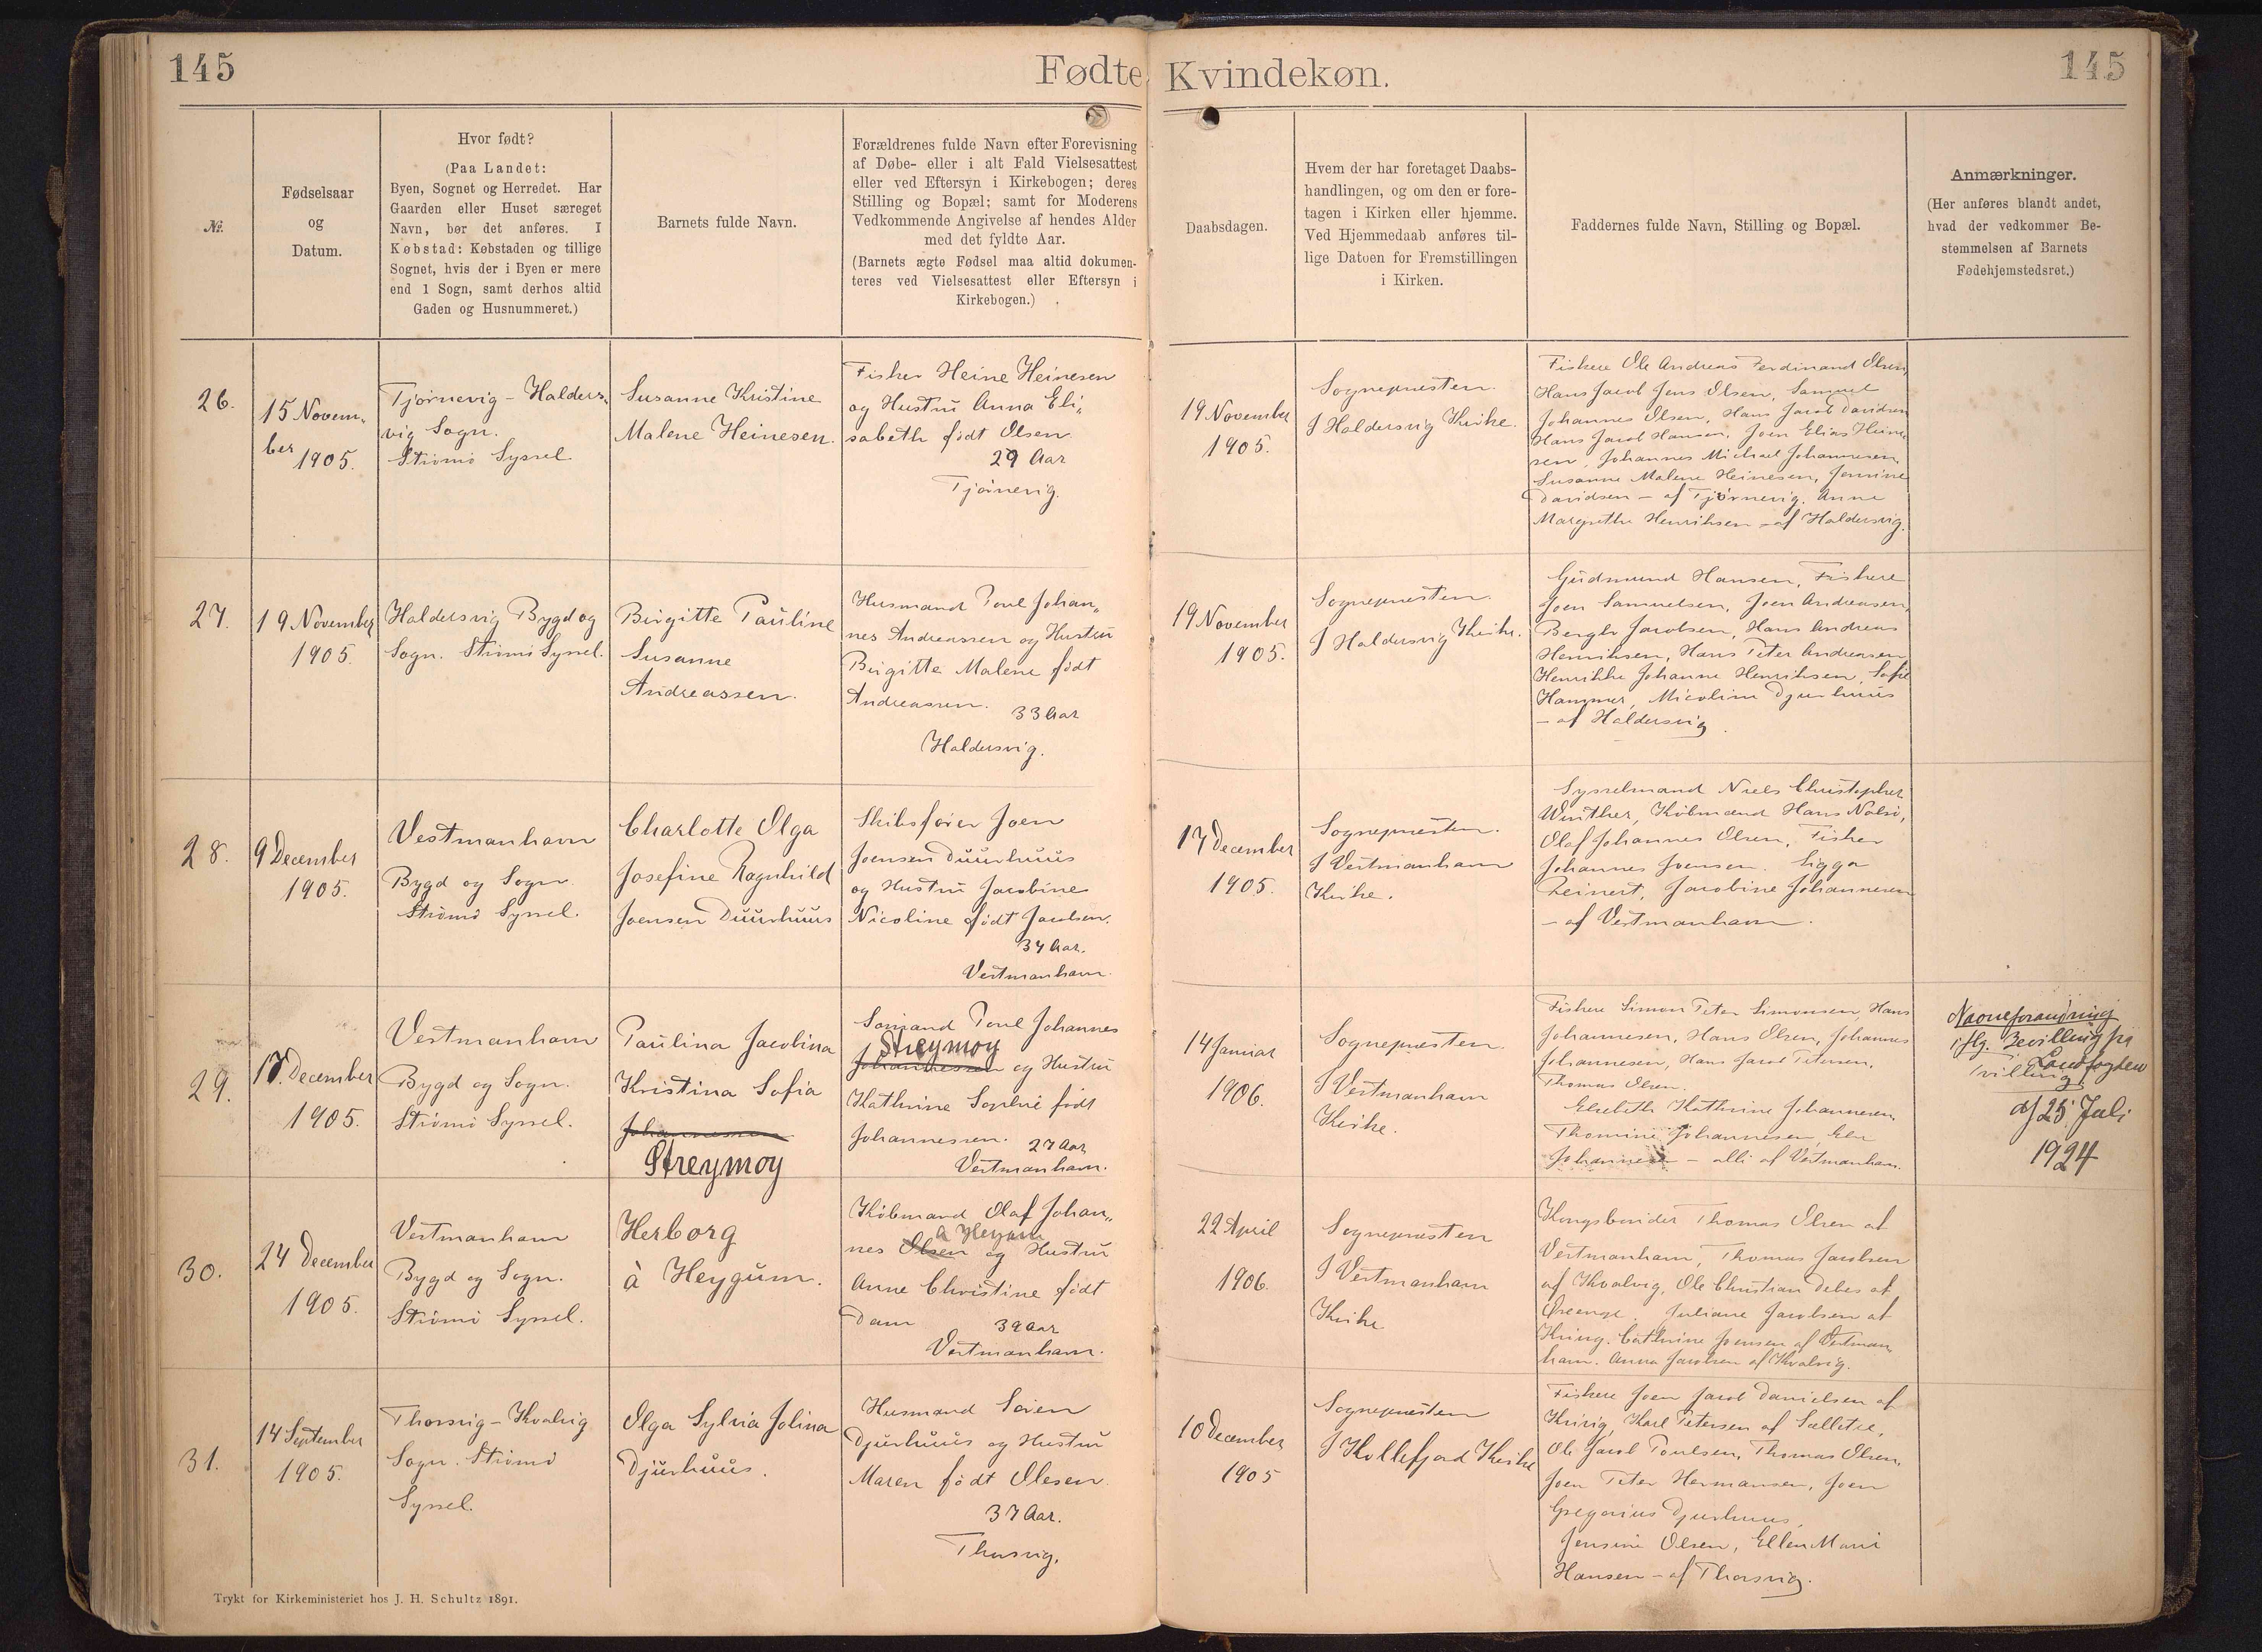 145
Fødte
Kvindekøn.
145
№.
Fødselsaar
og
Datum.
Hvor født?
(Paa Landet:
Byen, Sognet og Herredet. Har
Gaarden eller Huset særeget
Navn, bør det anføres. I
Købstad: Købstaden og tillige
Sognet, hvis der i Byen er mere
end 1 Sogn, samt derhos altid
Gaden og Husnummeret.)
Barnets fulde Navn.
Forældrenes fulde Navn efter Forevisning
af Døbe- eller i alt Fald Vielsesattest
eller ved Eftersyn i Kirkebogen; deres
Stilling og Bopæl; samt for Moderens
Vedkommende Angivelse af hendes Alder
med det fyldte Aar.
(Barnets ægte Fødsel maa altid dokumen-
teres ved Vielsesattest eller Eftersyn i
Kirkebogen.)
Daabsdagen.
Hvem der har foretaget Daabs-
handlingen, og om den er fore-
tagen i Kirken eller hjemme.
Ved Hjemmedaab anføres til-
lige Datoen for Fremstillingen
i Kirken.
Faddernes fulde Navn, Stilling og Bopæl.
Anmærkninger.
(Her anføres blandt andet,
hvad der vedkommer Be-
stemmelsen af Barnets
Fødehjemstedsret.)
26.
15 Novem-
ber
1905.
Tjørnevig - Halders-
vig Sogn.
Strømø Syssel.
Susanne Kristine
Malene Heinesen.
Fisker Heine Heinesen
og Hustru Anna Eli-
sabeth født Olsen
29 Aar
Tjørnevig.
19 November
1905.
Sognepræsten.
I Haldersvig Kirke.
Fiskere Ole Andreas Ferdinand Olsen,
Hans Jacob Jens Olsen, Samuel
Johannes Olsen, Hans Jacob Davidsen
Hans Jacob Hansen, Joen Elias Heine-
sen, Johannes Michael Johannesen,
Susanne Malene Heinesen, Jensine
Davidsen - af Tjørnevig. Anne
Margrethe Henriksen - af Haldersvig.
27.
19 November
1905.
Haldersvig Bygd og
Sogn. Strømø Syssel.
Birgitte Pauline
Susanne
Andreassen.
Husmand Poul Johan-
nes Andreassen og Hustru
Birgitte Malene født
Andreassen.
33 Aar
Haldersvig.
19 November
1905.
Sognepræsten.
I Haldersvig Kirke.
Gudmund Hansen, Fiskere
Joen Samuelsen, Joen Andreasen,
Jacobsen, Hans Andreas
Henriksen, Hans Peter Andreasen
Henrikke Johanne Henriksen, Sofie
Hammer, Nicoline Djurhuus
- af Haldersvig.
28.
9 December
1905.
Vestmanhavn
Bygd og Sogn
Strømø Syssel.
Charlotte Olga
Josefine Ragnhild
Joensen Duurhuus
Skibsfører Joen
Joensen Duurhuus
og Hustru Jacobine
Nicoline født Jacobsen.
34 Aar.
Vestmanhavn.
17 December
1905.
Sognepræsten.
I Vestmanhavn
Kirke.
Sysselmand Niels Christopher
Winther, Købmænd Hans Nolsø,
Olaf Johannes Olsen, Fisker
Johannes Joensen. Sigga
Reinert, Jacobine Johannesen
- af Vestmanhavn.
29.
17. December
1905.
Vestmanhavn
Bygd og Sogn.
Strømø Syssel.
Paulina Jacobina
Kristina Sofia
Johannessen
Streymoy
Sømand Poul Johannes
Streymoy
Johannessen og Hustru
Kathrine Sophie født
Johannessen.
27 Aar
Vestmanhavn.
14 Januar
1906.
Sognepræsten.
I Vestmanhavn
Kirke.
Fiskere Simon Peter Simonsen, Hans
Johannesen, Hans Olsen, Johannes
Johannesen, Hans Jacob Petersen,
Thomas Olsen.
Elsebeth Kathrine Johannesen,
Thomine Johannesen,
Johannesen - alle af Vestmanhavn.
Navneforandring
iflg. Bevilling fra
Landfogden
Tvilling.
af 25. Juli
1924
30.
24 December
1905.
Vestmanhavn
Bygd og Sogn.
Strømø Syssel.
Herborg
à Heygum.
Købmand Olaf Johan-
à Heygum
nes Olsen og Hustru
Anne Christine født
Dam
39 Aar
Vestmanhavn.
22 April
1906.
Sognepræsten
I Vestmanhavn
Kirke
Kongsbonde Thomas Olsen af
Vestmanhavn, Thomas Jacobsen
af Kvalvig, Ole Christian Debes af
Juliane Jacobsen af
Cathrine Joensen af Vestman-
havn. Anna Jacobsen af Kvalvig.
31.
14 September
1905.
Thorsvig - Kvalvig
Sogn. Strømø
Syssel.
Olga Sylvia Jolina
Djurhuus.
Husmand Søren
Djurhuus og Hustru
Maren født Olesen
37 Aar.
Thorsvig.
10 December
1905
Sognepræsten
I Kollefjord Kirke
Fiskere Joen Jacob Danielsen af
Karl Petersen af Sælletræ,
Ole Jacob Poulsen, Thomas Olsen,
Joen Peter Hermansen, Joen
Gregorius Djurhuus,
Jensine Olsen, Ellen Marie
Hansen - af Thorsvig.
Trykt for Kirkeministeriet hos J. H. Schultz 1891.